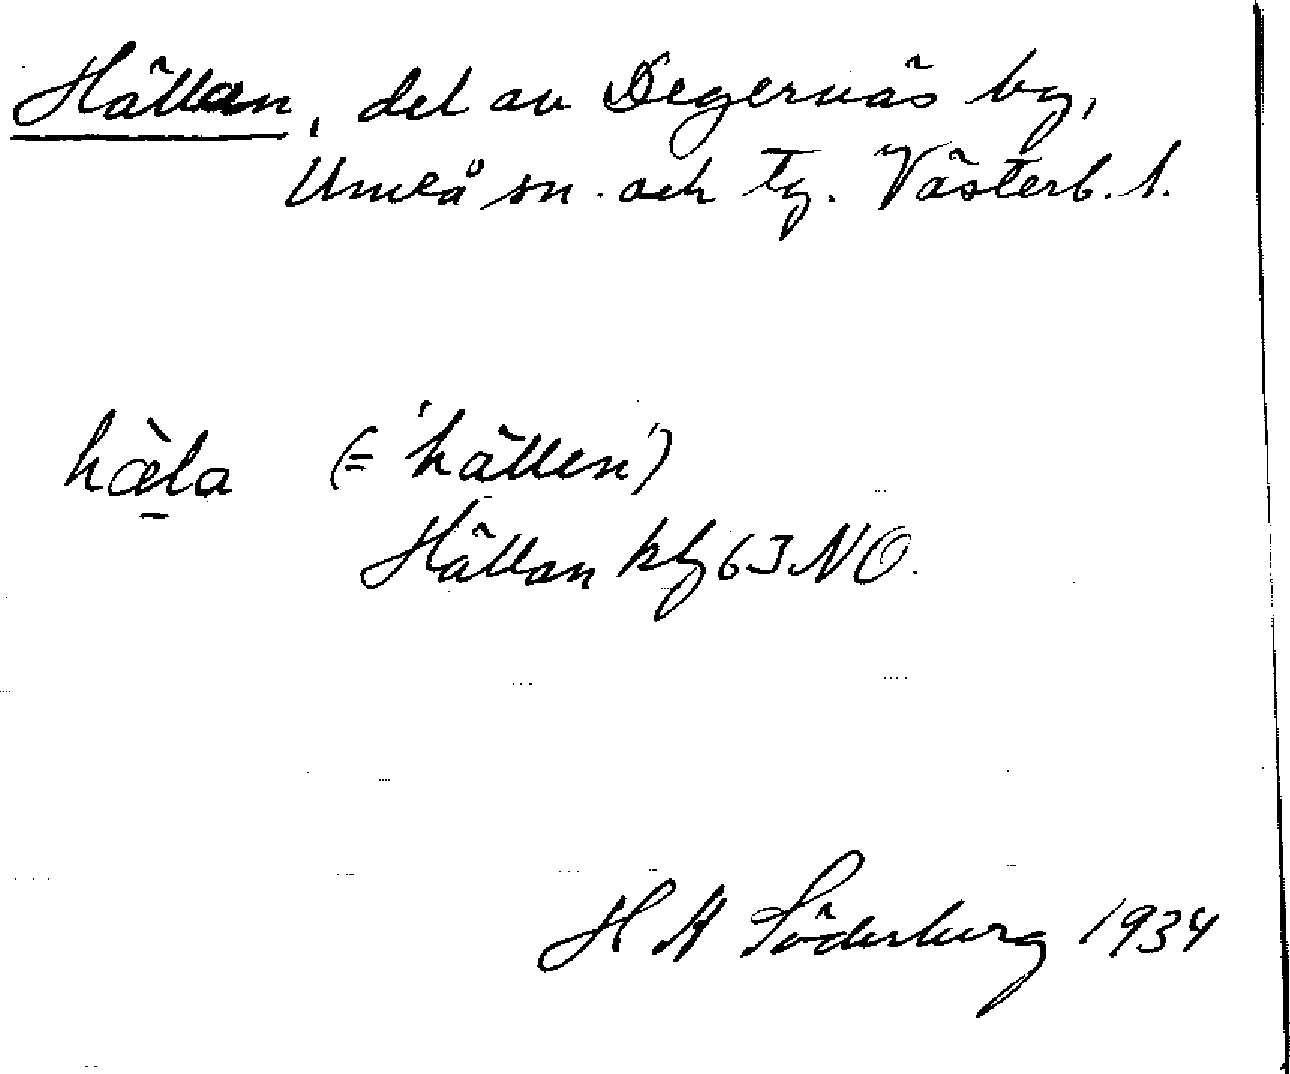 Hällan, del av Degernäs by,
Umeå sn och tg. Västerb. l.
hæ̀la (= 'hällen')
Hällan kbl 63 NO.
H A Söderberg 1934